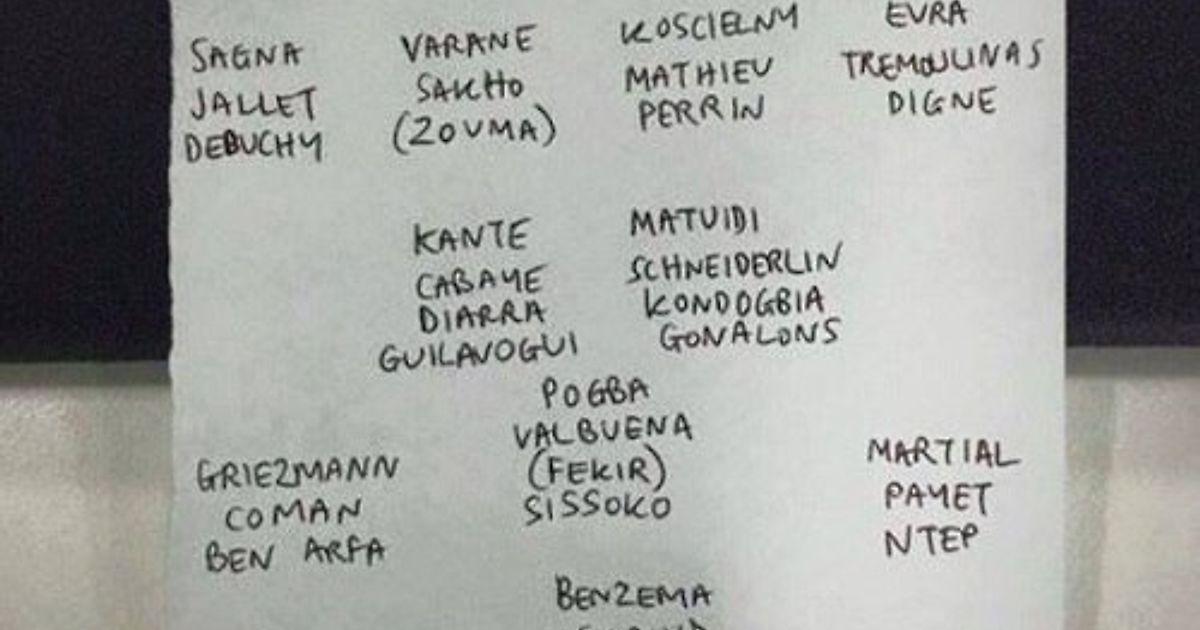 SAGNA
JALLET
DEBUCHY
VARANE
SAKHO
(ZOUMA)
KOSCIELNY
MATHIEU
PERRIN
EVRA
TREMOULINAS
DIGNE
KANTE
CABAYE
DIARRA
GUILAVOGUI
MATUIDI
SCHNEIDERLIN
KONDOGBIA
GONALONS
POGBA
VALBUENA
(FEKIR)
SISSOKO
GRIEZMANN
COMAN
BEN ARFA
MARTIAL
PAYET
NTEP
BENZEMA